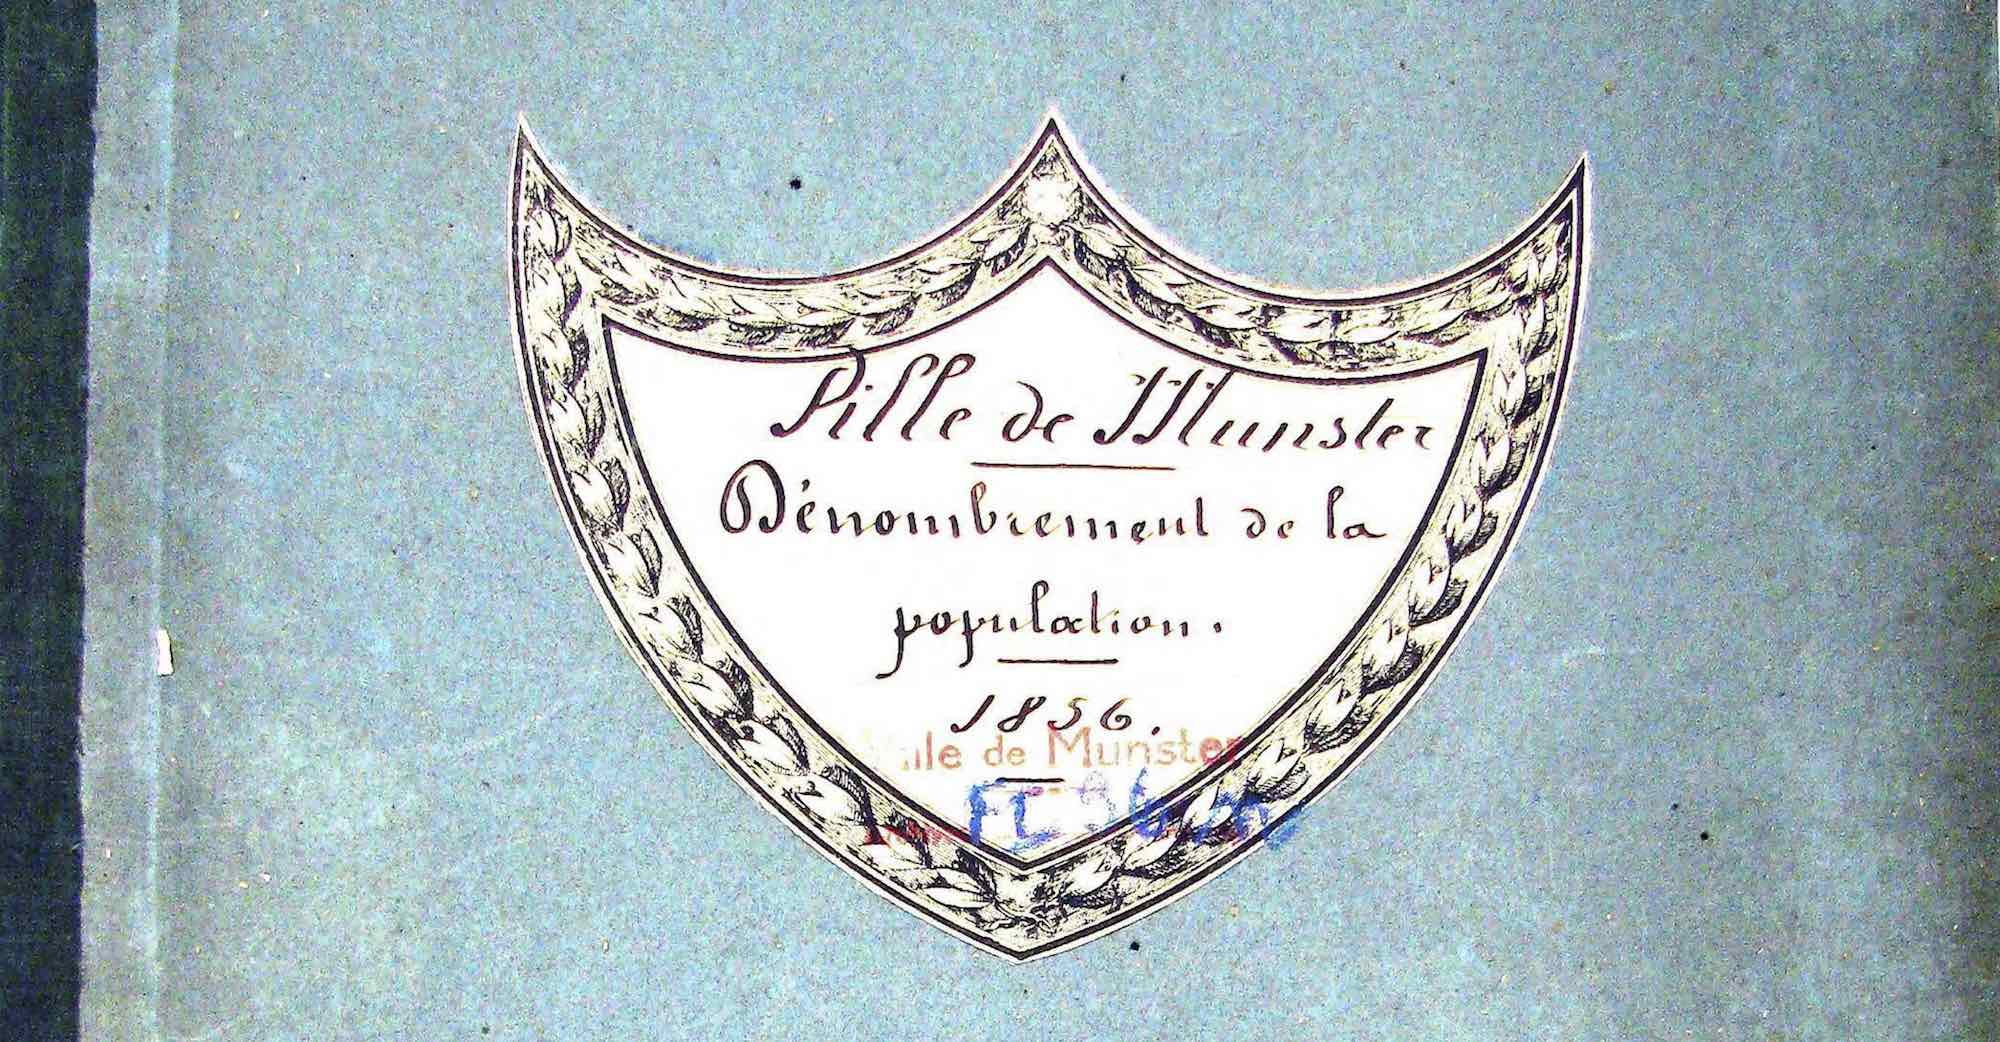 Ville de Munster
Dénombrement de la
population.
1856.
Ville de Munster